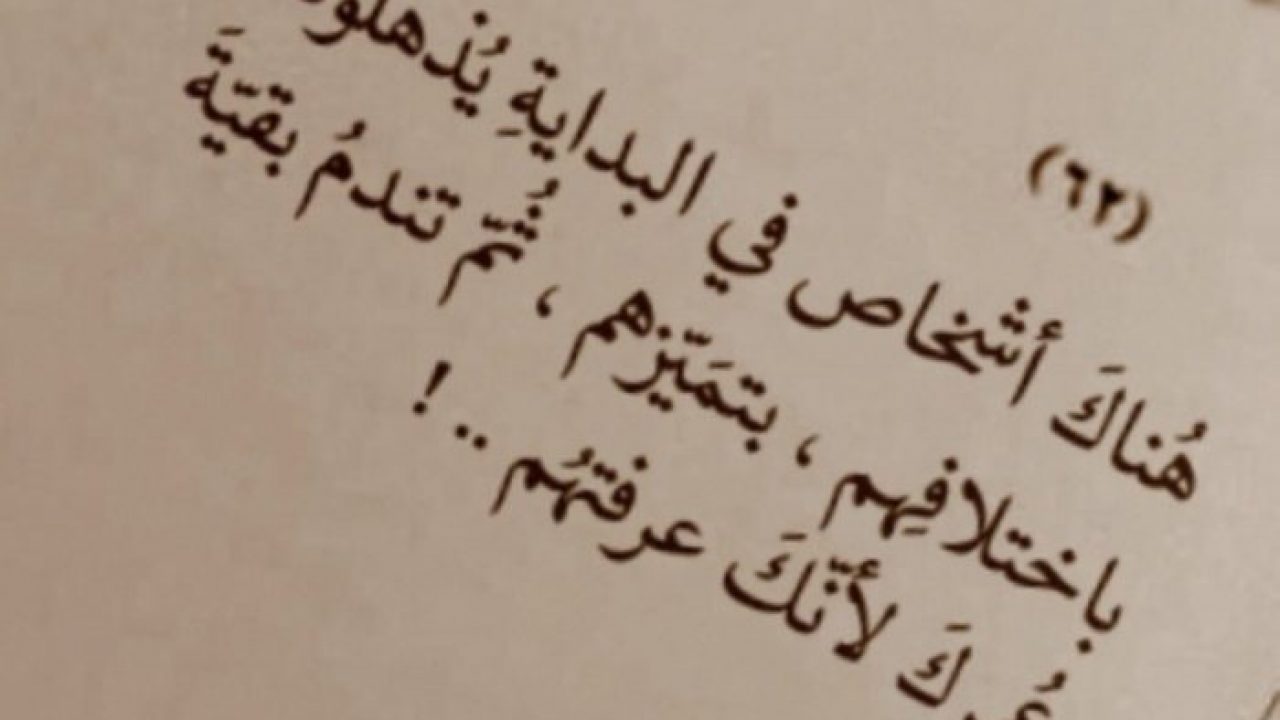 (٦٢)
هُناكَ أشخاص في البدايةِ
باختلافِهم ، بتمَيّزهم ، ثُمّ تندمُ بقيّةَ
لأنّكَ عرفتهُم .. !